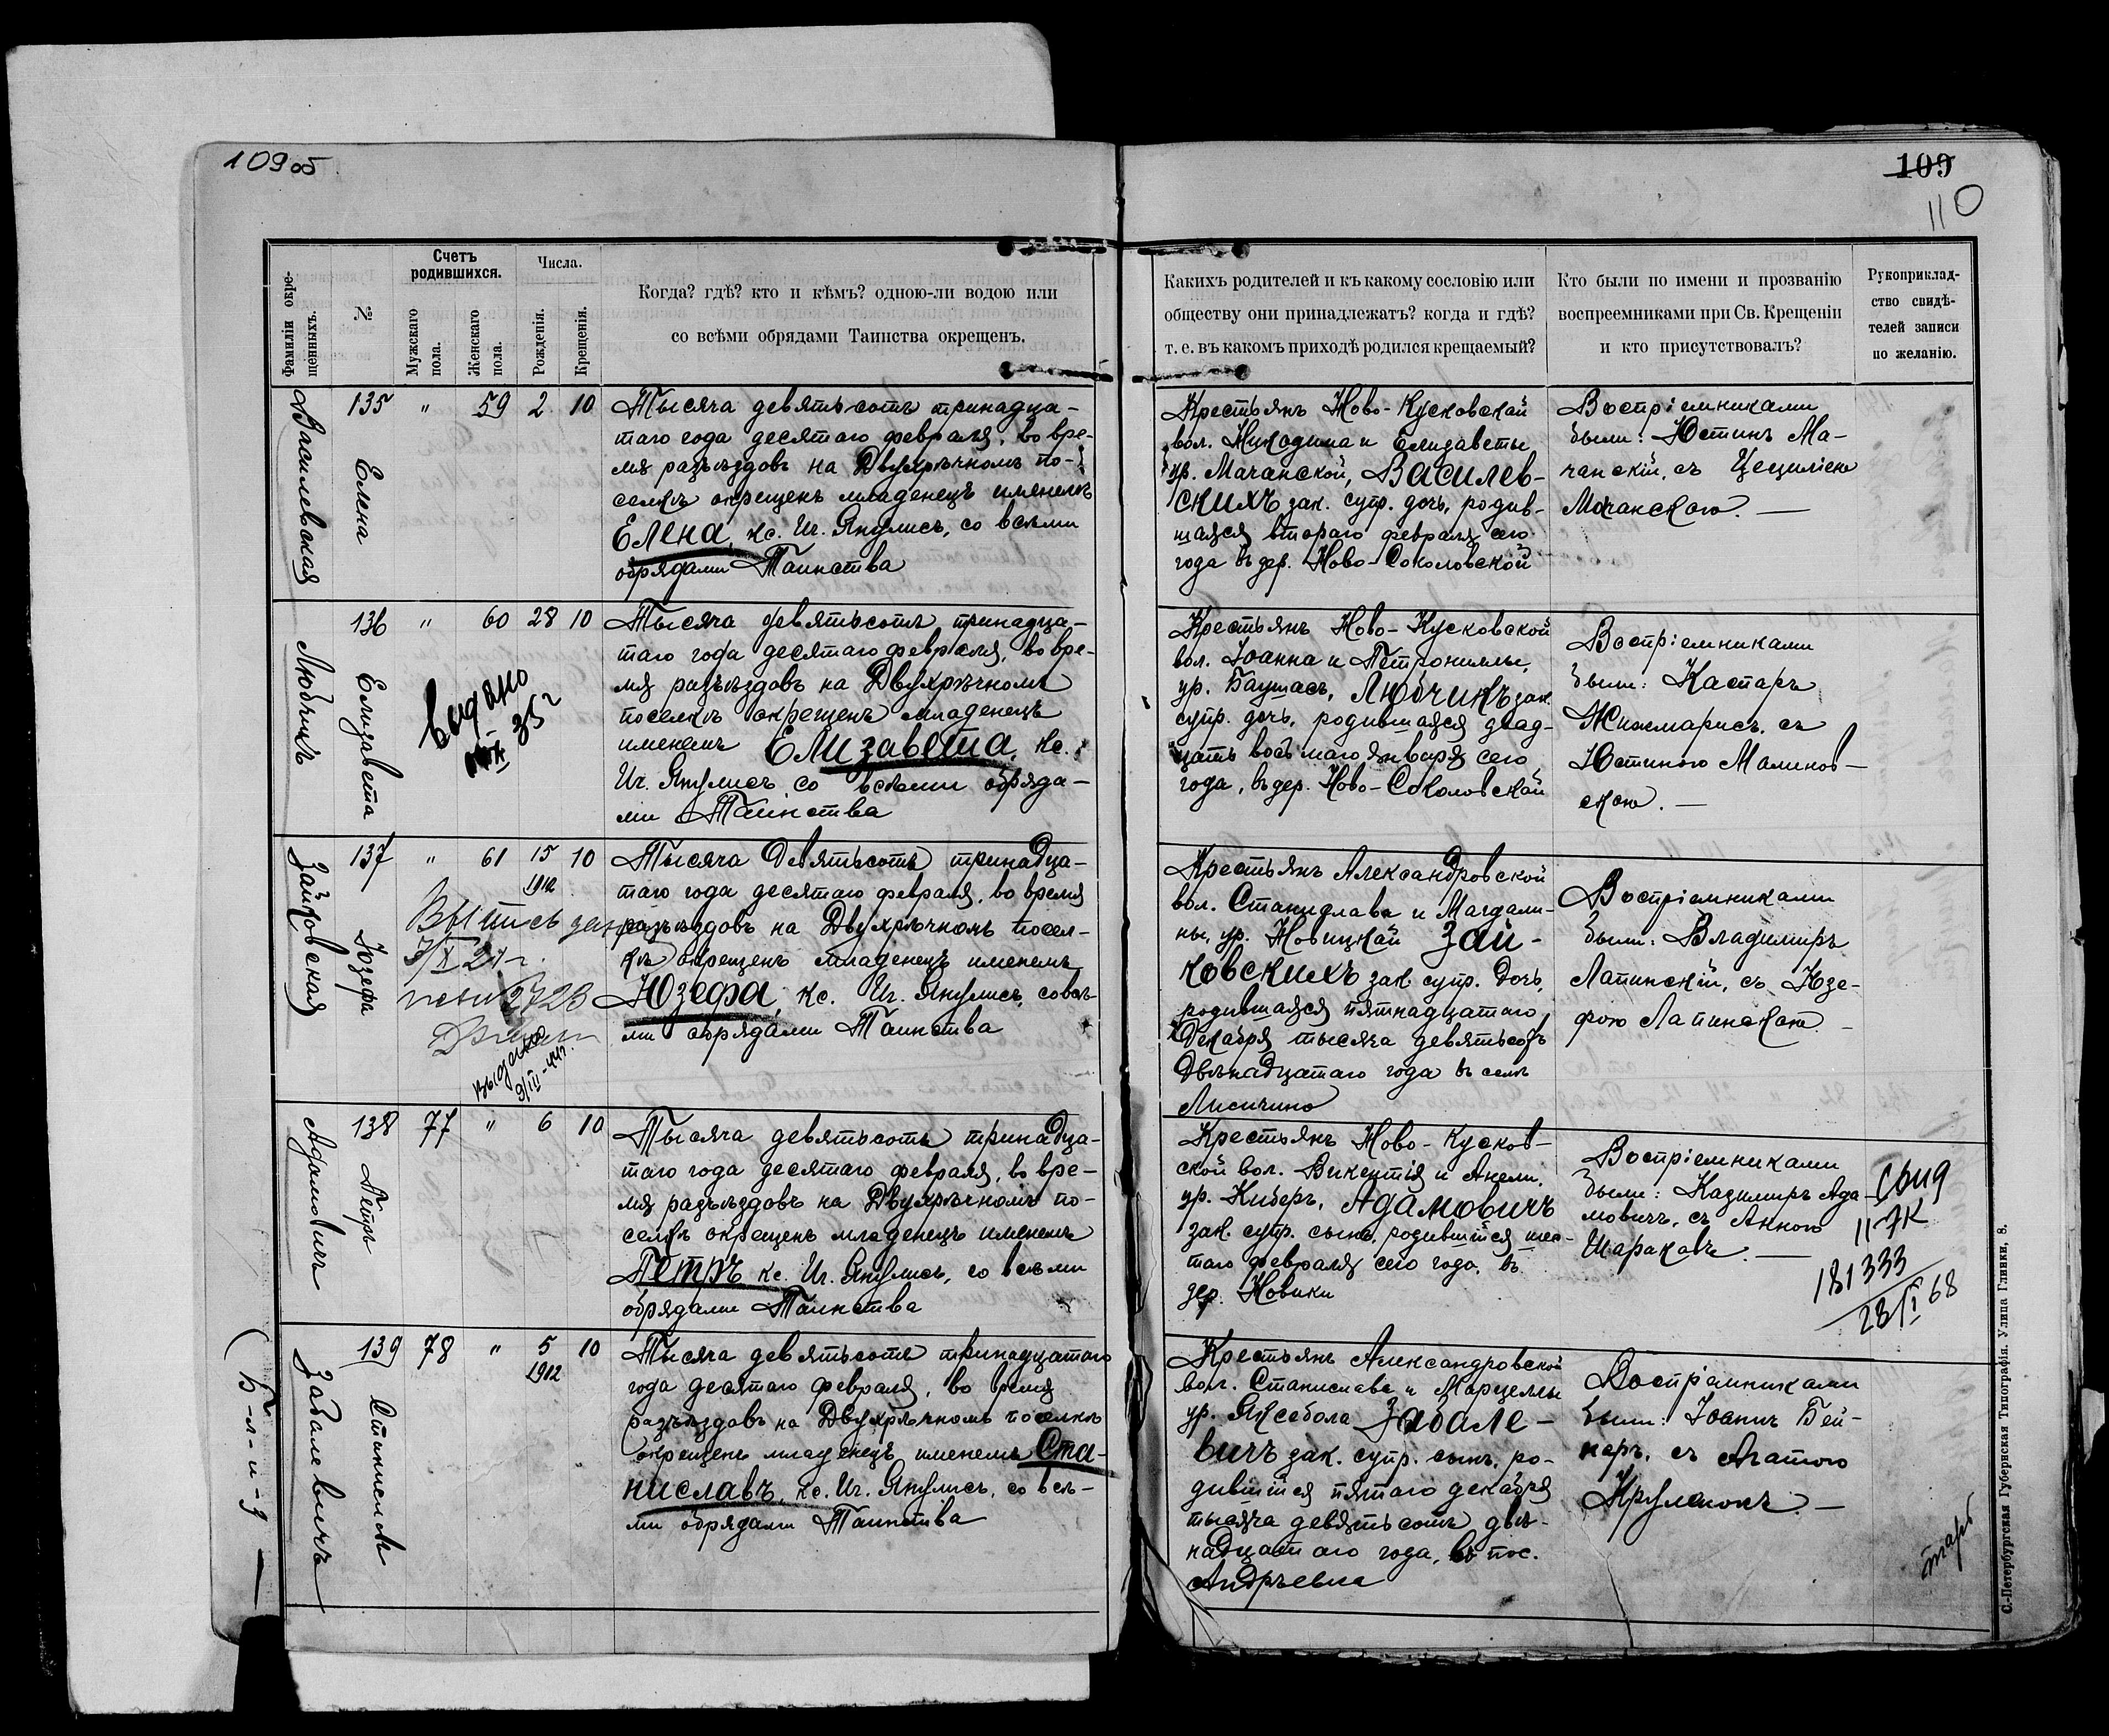 109 об
109
110
Фамиліи окре-
щенныхъ.
№
Счетъ
родившихся.
Мужскаго
пола.
Женскаго
пола.
Числа.
Рожденія.
Крещенія.
Когда? гдѣ? кто и кѣмъ? одною-ли водою или
со всѣми обрядами Таинства окрещенъ.
Какихъ родителей и къ какому сословію или
обществу они принадлежатъ? когда и гдѣ?
т. е. въ какомъ приходѣ родился крещаемый?
Кто были по имени и прозванію
воспреемниками при Св. Крещеніи
и кто присутствовалъ?
Рукоприклад-
ство свидѣ-
телей записи
по желанію.
Василевская
135 " 59 2 10
Елена
Тысяча девятьсотъ тринадца-
таго года десятаго февраля, во вре-
мя разъѣздовъ на Двухрѣчномъ по-
селкѣ окрещенъ младенецъ именемъ
Елена, кс. Иг. Янулисъ, со всѣми
обрядами Таинства
Крестьянъ Ново-Кусковской
вол. Никодима и Елизаветы
ур. Мачанской, Василев-
скихъ зак. супр. дочь, родив-
шаяся втораго февраля сего
года въ дер. Ново-Соколовской
Воспріемниками
были: Юстинъ Ма-
чанскій, съ Цециліею
Мочанскою. —
Любчикъ
136 " 60 28 10
Елизавета
Выдано
35 г
Тысяча девятьсотъ тринадца-
таго года десятаго февраля, во вре-
мя разъѣздовъ на Двухрѣчномъ
поселкѣ окрещенъ младенецъ
именемъ Елизавета, кс.
Иг. Янулисъ со всѣми обряда-
ми Таинства
Крестьянъ Ново-Кусковской
вол. Іоанна и Петрониллы,
ур. Баушасъ, Любчикъ зак.
супр. дочь, родившаяся двад-
цать восьмаго января сего
года, въ дер. Ново-Соколовской
Воспріемниками
были: Каспаръ
Жижмарисъ, съ
Юстиною Малинов-
скою. —
Зайковская
137 " 61 15 10
1912
Юзефа
Выпись
2723
выдана
9/III-44г.
Тысяча девятьсотъ тринадца-
таго года десятаго февраля, во время
разъѣздовъ на Двухрѣчномъ посел-
кѣ окрещенъ младенецъ именемъ
Юзефа, кс. Иг. Янулисъ, со всѣ-
ми обрядами Таинства
Крестьянъ Александровской
вол. Станислава и Магдали-
ны, ур. Новицкой Зай-
ковскихъ зак. супр. дочь,
родившаяся пятнадцатаго
Декабря тысяча девятьсотъ
двѣнадцатаго года въ селѣ
Лисичино
Воспріемниками
были: Владимиръ
Лапинскій, съ Юзе-
фою Лапинскою. —
Адамовичъ
138 77 " 6 10
Петръ
Тысяча девятьсотъ тринадца-
таго года десятаго февраля, во вре-
мя разъѣздовъ на Двухрѣчномъ по-
селкѣ окрещенъ младенецъ именемъ
Петръ кс. Иг. Янулисъ, со всѣми
обрядами Таинства
Крестьянъ Ново-Кусков-
ской вол. Викентія и Анели,
ур. Киберъ, Адамовичъ
зак. супр. сынъ, родившійся шес-
таго февраля сего года, въ
дер. Новики
Воспріемниками
были: Казимиръ Ада-
мовичъ, съ Анною
Шараковъ. —
11-7К
181333
23/I 68
Забалевичъ
139 78 " 5 10
1912
Станиславъ
Тысяча девятьсотъ тринадцатаго
года десятаго февраля, во время
разъѣздовъ на Двухрѣчномъ поселкѣ
окрещенъ младенецъ именемъ Ста-
ниславъ, кс. Иг. Янулисъ, со всѣ-
ми обрядами Таинства
Крестьянъ Александровской
вол. Станислава и Марцеллы
ур. Яксебола Забале-
вичъ зак. супр. сынъ, ро-
дившійся пятаго декабря
тысяча девятьсотъ двѣ-
надцатаго года, въ пос.
Андрѣевка
Воспріемниками
были: Іоаннъ Бей-
наръ, съ Агатою
Крумонъ. —
С.-Петербургская Губернская Типографія. Улица Глинки, 8.